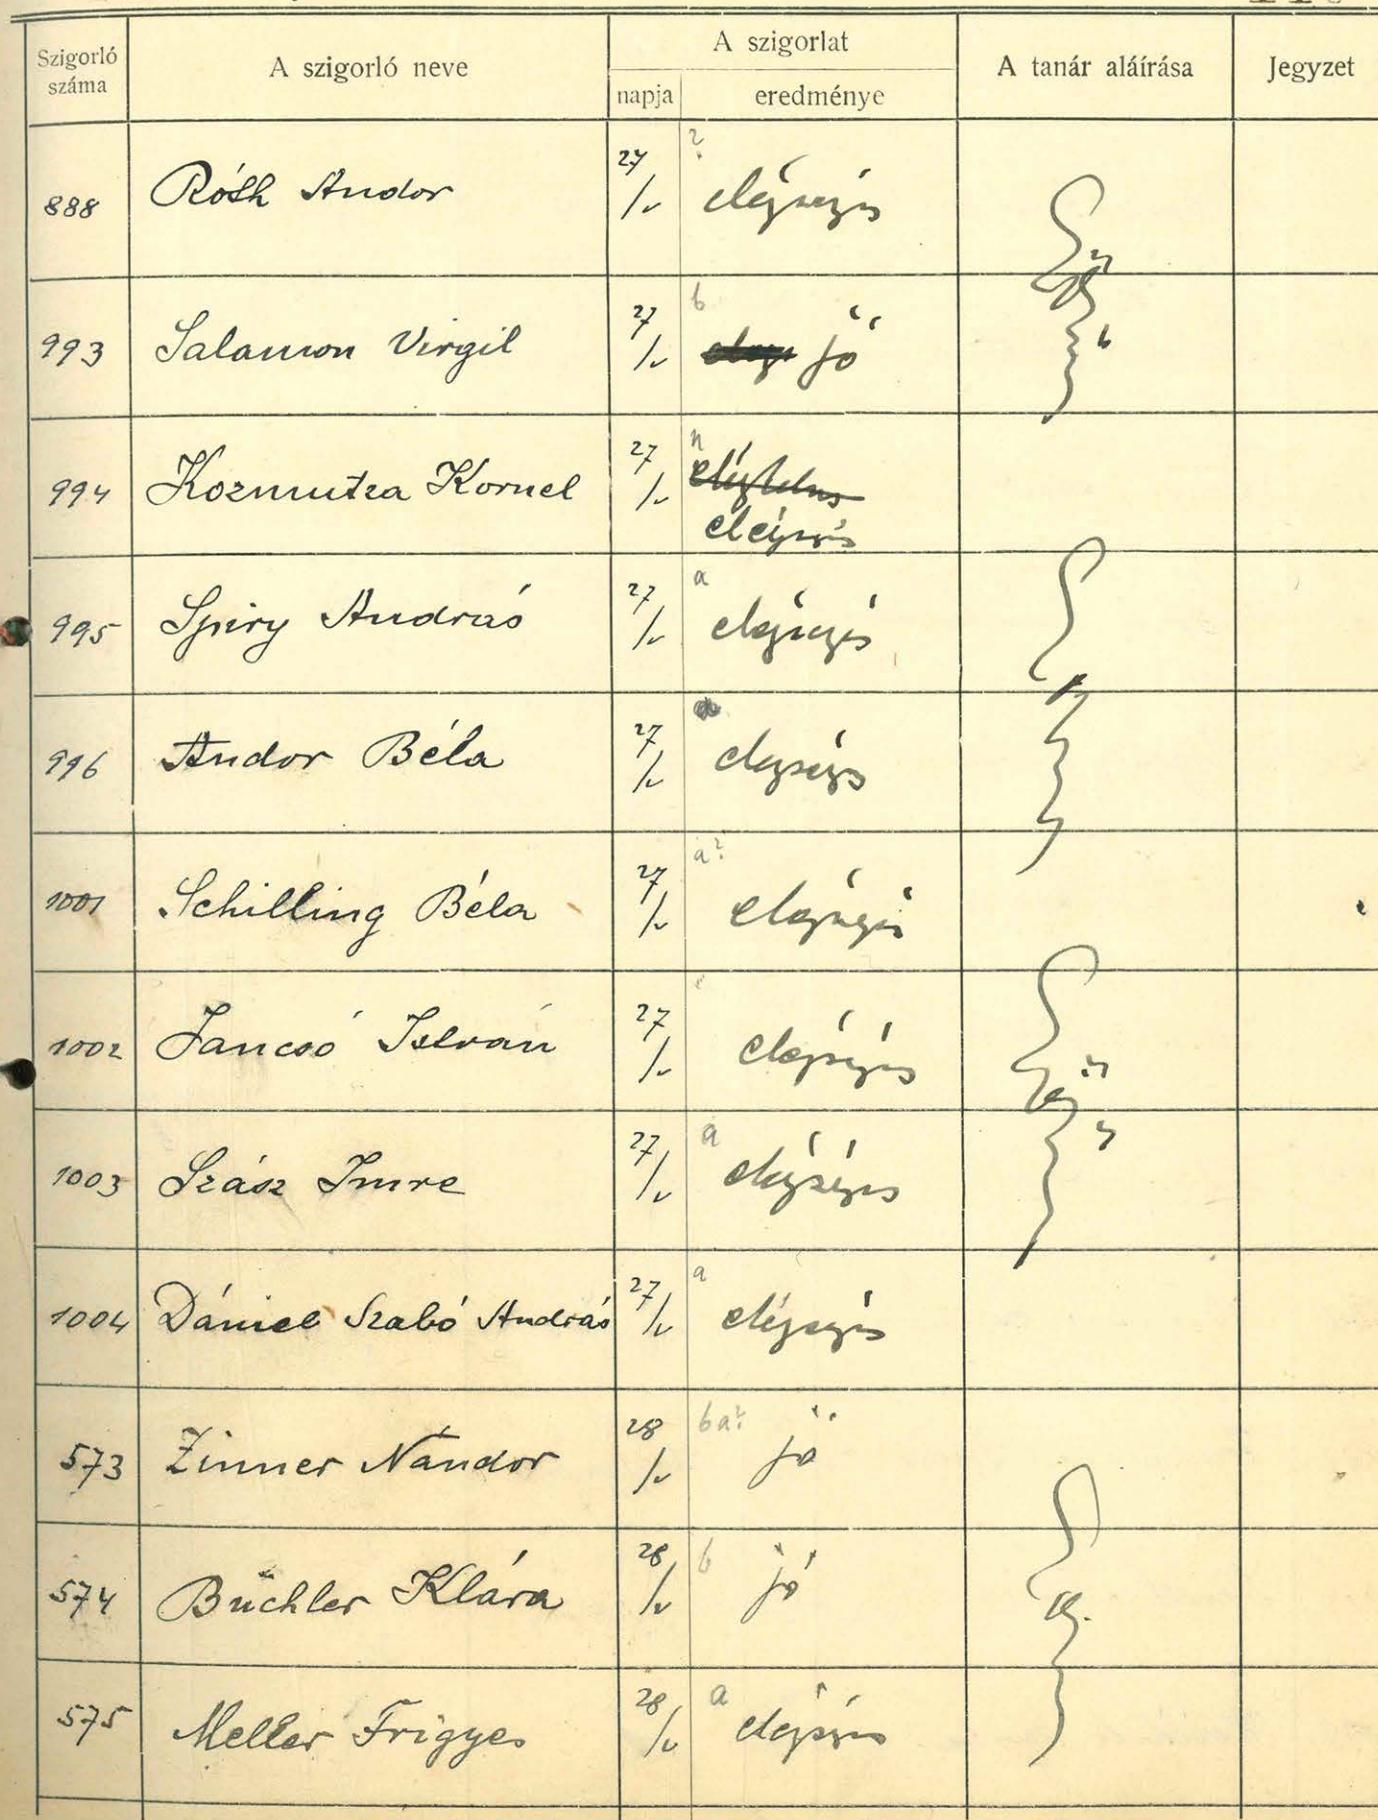 Szigorló száma | A szigorló neve | A szigorlat napja | A szigorlat eredménye | A tanár aláírása | Jegyzet
888 Róth Andor 27/V ? elégséges
993 Salamon Virgil 27/V b jó
994 Kozmutza Kornel 27/V n elégtelen
elégséges
995 Spiry András 27/V a elégséges
996 Andor Béla 27/V elégséges
1001 Schilling Béla 27/V a? elégséges
1002 Jancsó István 27/V elégséges
1003 Szász Imre 27/V a elégséges
1004 Dániel Szabó András 27/V a elégséges
573 Zinner Nándor 28/V ba? jó
574 Büchler Klára 28/V b jó
575 Meller Frigyes 28/V a elégséges